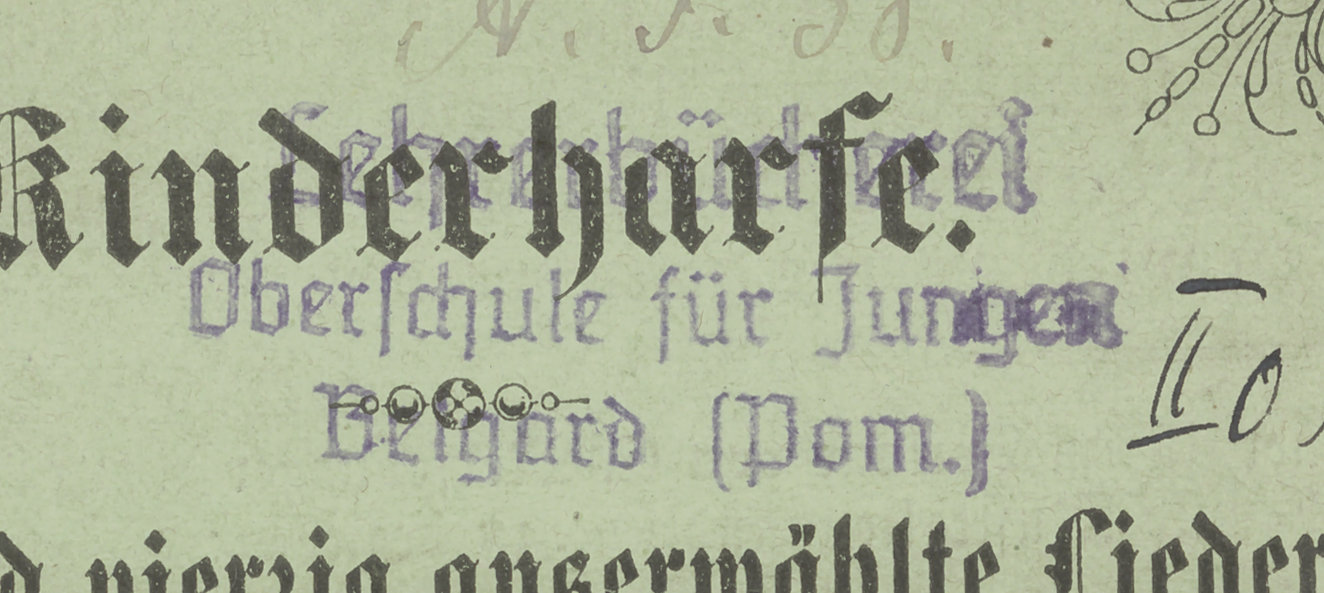 Kinderharfe.
Lehrerbücherei
Oberschule für Jungen
II
Belgard (Pom.)
vierzig auserwählte Lieder